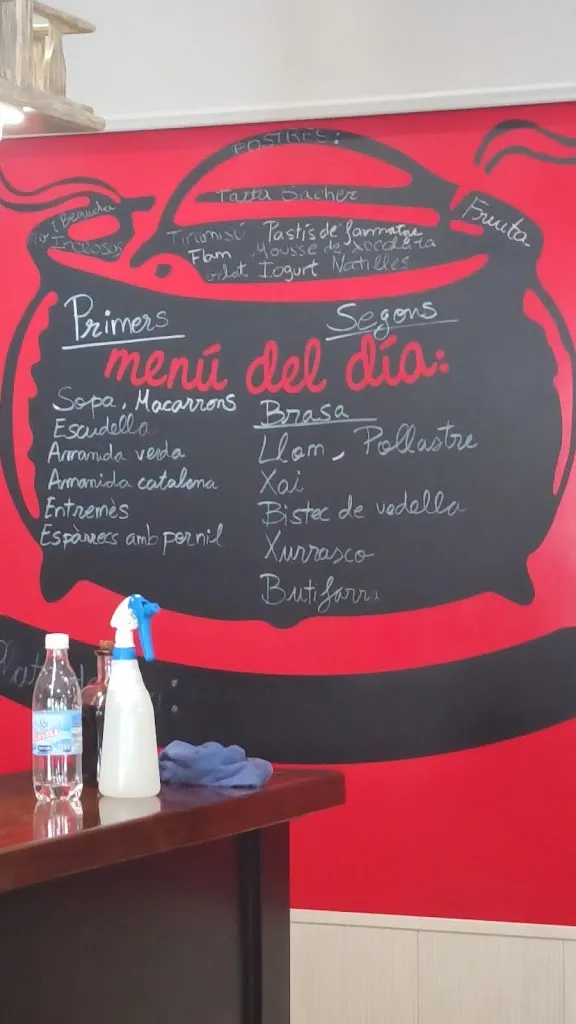 POSTRES:
Tarta Sacher
Tiramisú Pastís de formatge
Flam Mousse de xocolata
Iogurt Natilles
1 Beguda
Fruita
Primers
Segons
menú del día:
Sopa, Macarrons
Escudella
Amanida verda
Amanida catalana
Entremès
Espàrrecs amb pernil
Brasa
Llom, Pollastre
Xai
Bistec de vedella
Xurrasco
Butifarra